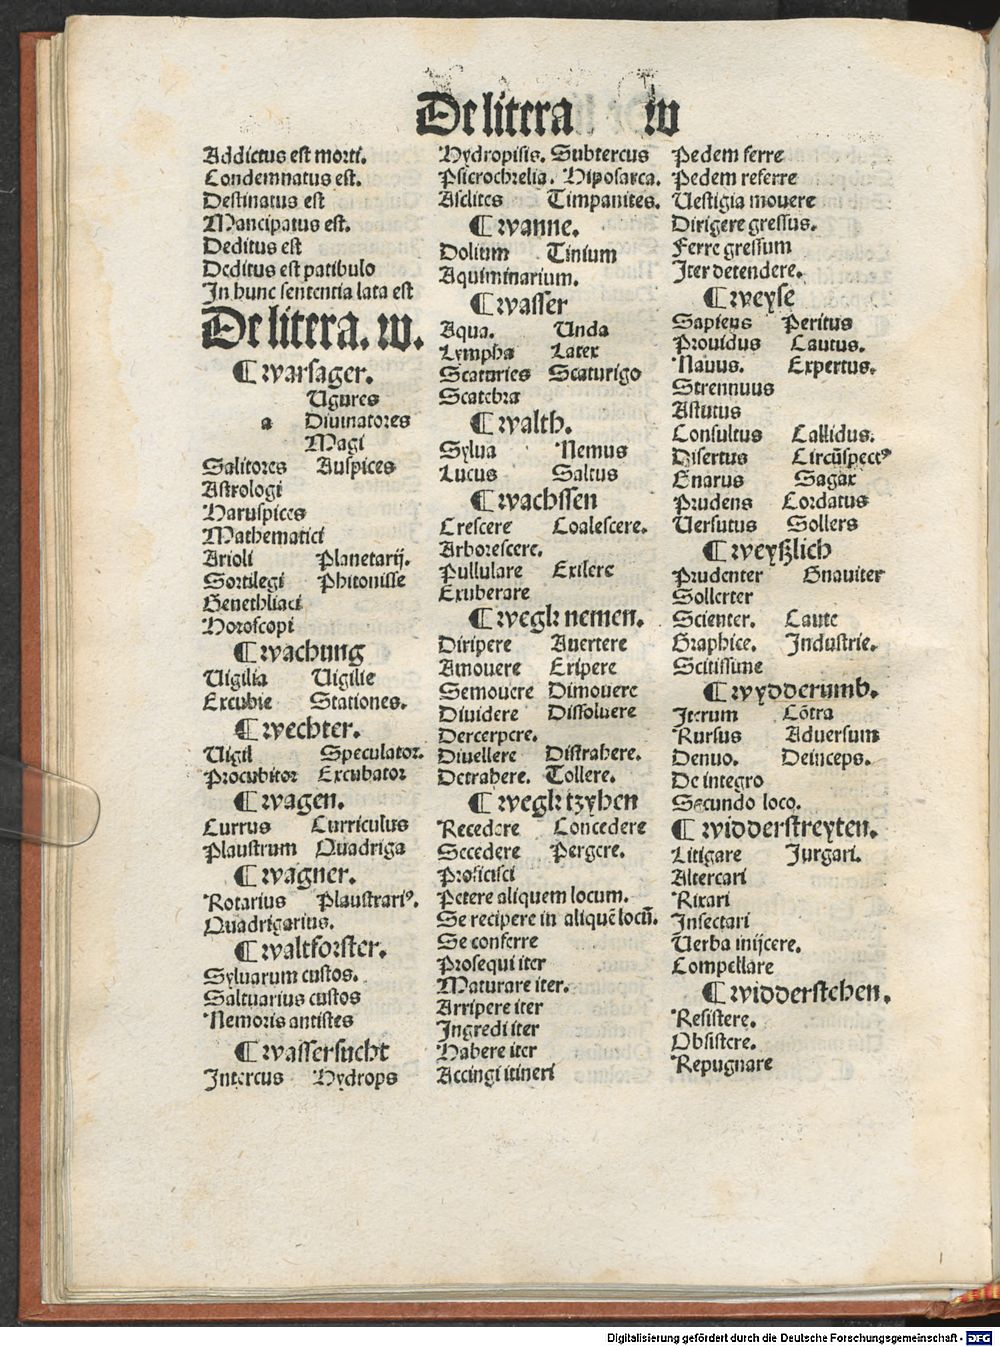 De litera w
Addictus est morti.
Condemnatus est.
Destinatus est
Mancipatus est.
Deditus est
Deditus est patibulo
In hunc sententia lata est
De litera. w.
¶ warsager.
Ugures
a Diuinatores
Magi
Salitores Auspices
Astrologi
Haruspices
Mathematici
Arioli Planetarij.
Sortilegi Phitonisse
Genethliaci
Horoscopi
¶ wachung
Uigilia Uigilie
Excubie Stationes.
¶ wechter.
Uigil Speculator.
Procubitor Excubator
¶ wagen.
Currus Curriculus
Plaustrum Quadriga
¶ wagner.
Rotarius Plaustrariꝰ.
Quadrigarius.
¶ waltforster.
Syluarum custos.
Saltuarius custos
Nemoris antistes
¶ wassersucht
Intercus Hydrops
Hydropisis. Subtercus
Psicrochrelia. Hiposarca.
Asclites Timpanites.
¶ wanne.
Dolium Tinium
Aquiminarium.
¶ wasser
Aqua. Unda
Lympha Latex
Scaturies Scaturigo
Scatebra
¶ walth.
Sylua Nemus
Lucus Saltus
¶ wachssen
Crescere Coalescere.
Arborescere.
Pullulare Exilere
Exuberare
¶ wegk nemen.
Diripere Auertere
Amouere Eripere
Semouere Dimouere
Diuidere Dissoluere
Dercerpere.
Diuellere Distrahere.
Detrahere. Tollere.
¶ wegk tzyhen
Recedere Concedere
Secedere Pergere.
Proficisci
Petere aliquem locum.
Se recipere in aliquē locū.
Se conferre
Prosequi iter
Maturare iter.
Arripere iter
Ingredi iter
Habere iter
Accingi itineri
Pedem ferre
Pedem referre
Uestigia mouere
Dirigere gressus.
Ferre gressum
Iter detendere.
¶ weyse
Sapiens Peritus
Prouidus Cautus.
Nauus. Expertus.
Strennuus
Astutus
Consultus Callidus.
Disertus Circūspectꝰ
Enarus Sagax
Prudens Cordatus
Uersutus Sollers
¶ weyßlich
Prudenter Gnauiter
Sollerter
Scienter. Caute
Graphice. Industrie.
Scitissime
¶ wydderumb.
Iterum Cōtra
Rursus Aduersum
Denuo. Deinceps.
De integro
Secundo loco.
¶ widderstreyten.
Litigare Iurgari.
Altercari
Rixari
Insectari
Uerba inijcere.
Compellare
¶ widderstehen.
Resistere.
Obsistere.
Repugnare
Digitalisierung gefördert durch die Deutsche Forschungsgemeinschaft - DFG